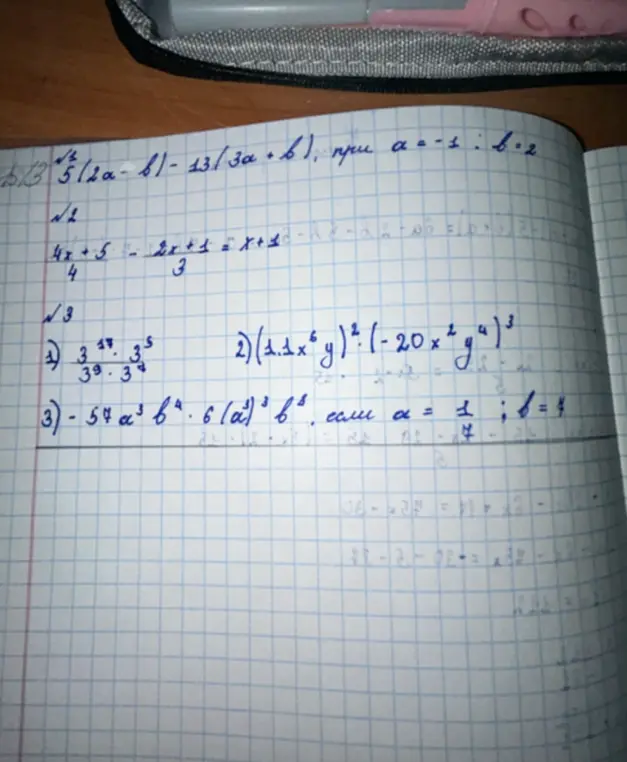 №1
5(2a - b) - 13(3a + b), при a = -1 ; b = 2
№2
4x + 5 / 4 - 2x + 1 / 3 = x + 1
№3
1) 3^17 · 3^5 / 3^9 · 3^7 2) (1.1x^6 y)^2 · (-20x^2 y^4)^3
3) - 57a^3 b^4 · 6(a^3)^3 b^5, если a = 1/7 ; b = 7